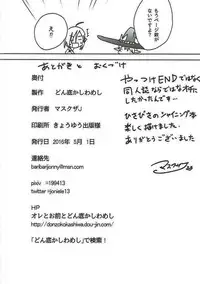 もうページ数が
ないですよ!
えっ
あとがき と おくづけ
奥付
製作 どん底かしわめし
発行者 マスクザJ
印刷所 きょうゆう出版様
発行日 2016年 5月 1日
連絡先
barbarjonny@msn.com
pixiv =199413
twitter =joniele13
HP
オレとお前とどん底かしわめし
http://donzokokashiwa.dou-jin.com/
「どん底かしわめし」で検索!
やっつけENDではなく
同人誌ならではなオチに
したかったんです…
ひさびさのシャイニング本
楽しく描けました
ありがとうございました
マスクザJ